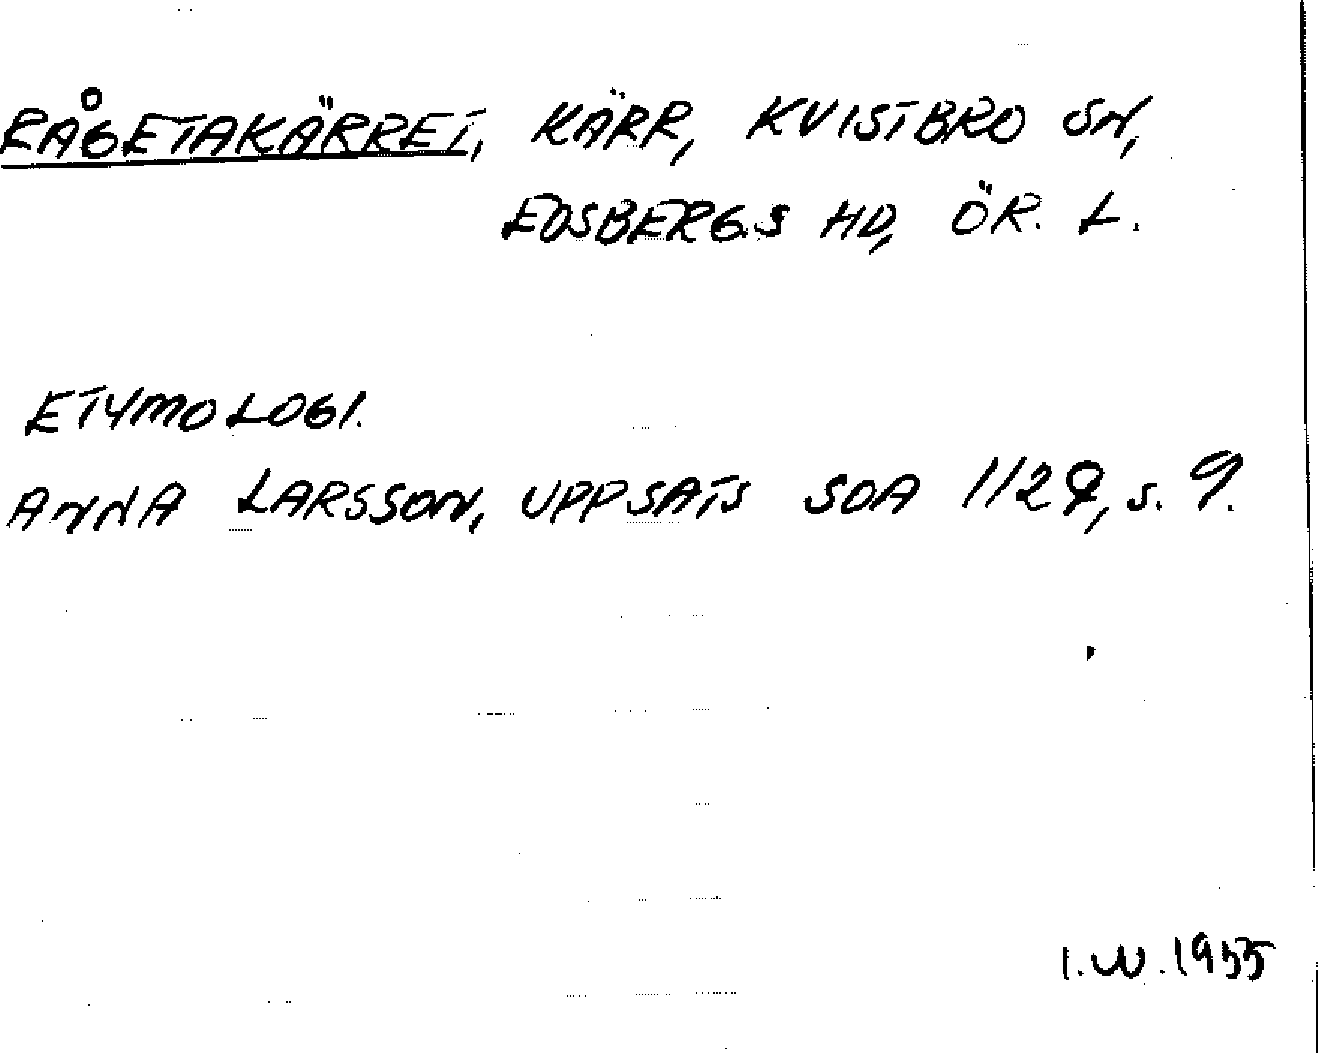 RÅGETAKÄRRET, KÄRR, KVISTBRO SN,
EDSBERGS HD, ÖR. L.
ETYMOLOGI.
ANNA LARSSON, UPPSATS SOA 1129, s. 9.
I.W.1955